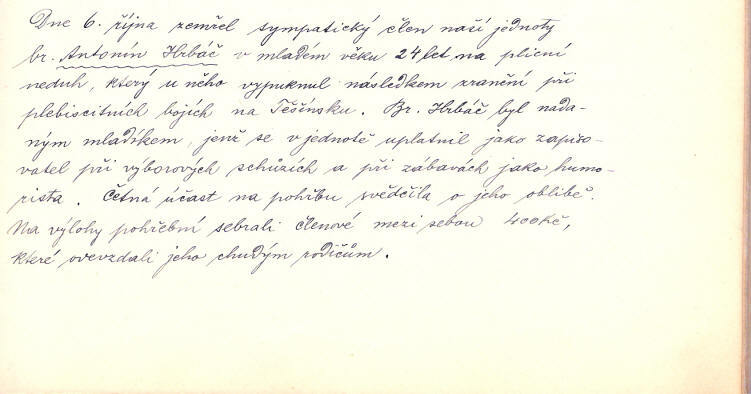 Dne 6. října zemřel sympatický člen naší jednoty
br. Antonín Hrbáč v mladém věku 24 let na plicní
neduh, který u něho vypuknul následkem zranění při
plebiscitních bojích na Těšínsku. Br. Hrbáč byl nada-
ným mladíkem, jenž se v jednotě uplatnil jako zapiso-
vatel při výborových schůzích a při zábavách jako humo-
rista. Četná účast na pohřbu svědčila o jeho oblibě.
Na výlohy pohřební sebrali členové mezi sebou 400 Kč,
které odevzdali jeho chudým rodičům.